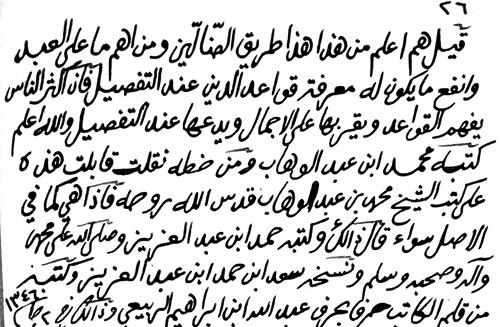 ٢٦
قيل هم اعلم من هذا هذا طريق الضالين ومن اهم ما على العبد
وانفع ما يكون له معرفة قواعد الدين عند التفصيل فان اكثر الناس
يفهم القواعد ويقر بها على الاجمال ويدعها عند التفصيل والله اعلم
كتبه محمد ابن عبد الوهاب ومن خطه نقلت قابلت هذه
على كتب الشيخ محمد بن عبد الوهاب قدس الله روحه فاذا هي كما في
الاصل سواء قال ذالك وكتبه حمد ابن عبد العزيز وصلى الله على محمد
وآله وصحبه وسلم ونسخه سعد ابن حمد ابن عبد العزيز وكتبته
من قلم الكاتب حرفا بحرف عبد الله ابن ابراهيم الربيعي وذالك في ٢ جا
١٣٤٦